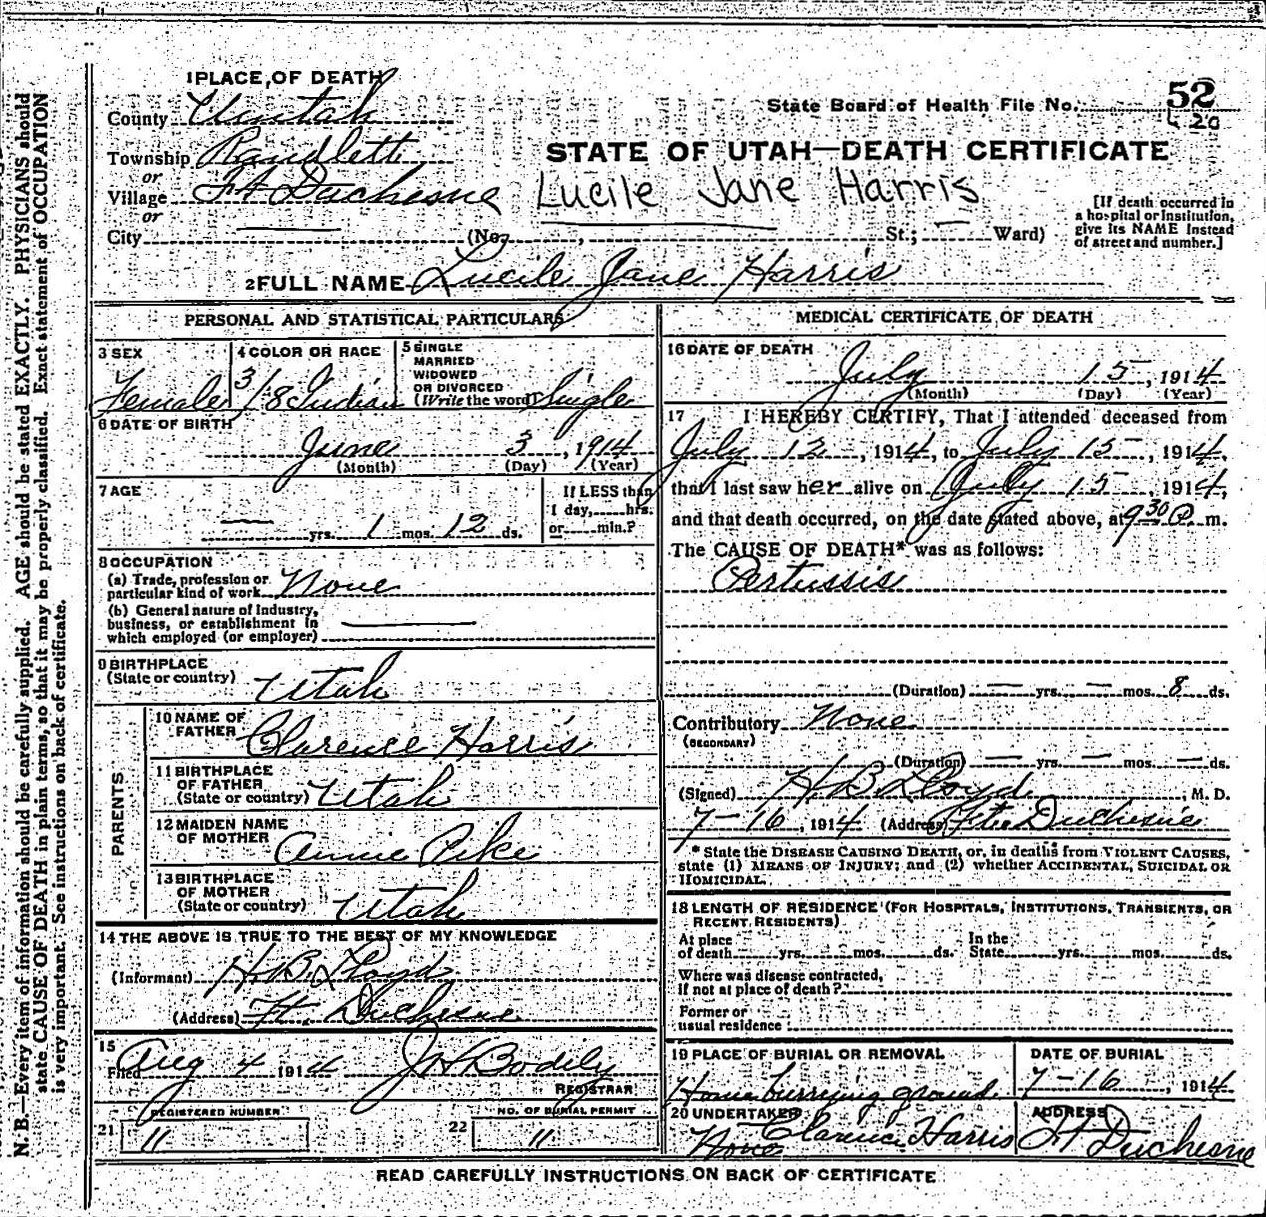 1 PLACE OF DEATH
County Uintah
State Board of Health File No. 52
20
Township Randlett
or
STATE OF UTAH—DEATH CERTIFICATE
Village Ft Duchesne
Lucile Jane Harris
or
City (No. , St.; Ward)
[If death occurred in
a hospital or institution,
give its NAME instead
of street and number.]
2 FULL NAME Lucile Jane Harris
PERSONAL AND STATISTICAL PARTICULARS
3 SEX
Female
4 COLOR OR RACE
3/8 Indian
5 SINGLE
MARRIED
WIDOWED
OR DIVORCED
(Write the word) Single
6 DATE OF BIRTH
June 3, 1914
(Month) (Day) (Year)
7 AGE
— yrs. 1 mos. 12 ds.
If LESS than
1 day, hrs.
or min.?
8 OCCUPATION
(a) Trade, profession or
particular kind of work None
(b) General nature of Industry,
business, or establishment in
which employed (or employer) —
9 BIRTHPLACE
(State or country) Utah
PARENTS
10 NAME OF
FATHER Clarence Harris
11 BIRTHPLACE
OF FATHER
(State or country) Utah
12 MAIDEN NAME
OF MOTHER Annie Pike
13 BIRTHPLACE
OF MOTHER
(State or country) Utah
14 THE ABOVE IS TRUE TO THE BEST OF MY KNOWLEDGE
(Informant) H. B. Lloyd
(Address) Ft. Duchesne
15
Filed Aug 4 1914 J H Bodily
REGISTRAR
REGISTERED NUMBER
21 11
NO. OF BURIAL PERMIT
22 11
MEDICAL CERTIFICATE OF DEATH
16 DATE OF DEATH
July 15, 1914
(Month) (Day) (Year)
17 I HEREBY CERTIFY, That I attended deceased from
July 12, 1914, to July 15, 1914,
that I last saw her alive on July 15, 1914,
and that death occurred, on the date stated above, at 9 30 P. m.
The CAUSE OF DEATH* was as follows:
Pertussis
(Duration) — yrs. — mos. 8 ds.
Contributory None
(SECONDARY)
(Duration) — yrs. — mos. — ds.
(Signed) H. B. Lloyd, M. D.
7-16, 1914 (Address) Duchesne
* State the DISEASE CAUSING DEATH, or, in deaths from VIOLENT CAUSES,
state (1) MEANS OF INJURY; and (2) whether ACCIDENTAL, SUICIDAL OR
HOMICIDAL.
18 LENGTH OF RESIDENCE (FOR HOSPITALS, INSTITUTIONS, TRANSIENTS, OR
RECENT RESIDENTS)
At place
of death yrs. mos. ds.
In the
State yrs. mos. ds.
Where was disease contracted,
If not at place of death?
Former or
usual residence
19 PLACE OF BURIAL OR REMOVAL
Home burrying ground
DATE OF BURIAL
7-16, 1914
20 UNDERTAKER
None Clarence Harris
ADDRESS
Ft Duchesne
READ CAREFULLY INSTRUCTIONS ON BACK OF CERTIFICATE
N. B.—Every item of information should be carefully supplied. AGE should be stated EXACTLY. PHYSICIANS should
state CAUSE OF DEATH in plain terms, so that it may be properly classified. Exact statement of OCCUPATION
is very important. See instructions on back of certificate.